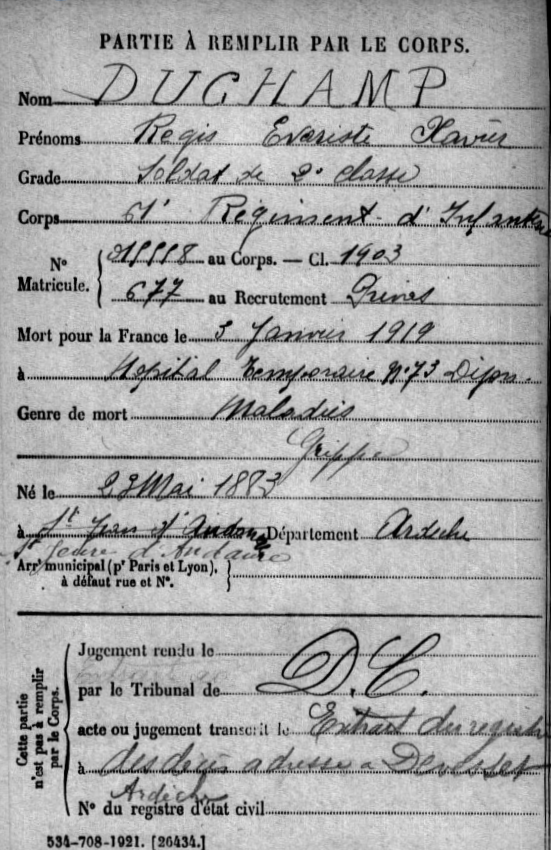 PARTIE À REMPLIR PAR LE CORPS.
Nom DUCHAMP
Prénoms Régis Evariste Xavier
Grade Soldat de 2e classe
Corps 61e Régiment d'Infanterie
No Matricule. au Corps. — Cl. 1903
677 au Recrutement Privas
Mort pour la France le 3 Janvier 1919
à Hopital Temporaire No 73 Dijon.
Genre de mort Maladies
Grippe
Né le 23 Mai 1883
à St Jean d'Andaure Département Ardèche
St Jeure d'Andaure
Arrt municipal (pr Paris et Lyon), à défaut rue et No.
Cette partie n'est pas à remplir par le Corps.
Jugement rendu le
par le Tribunal de D.C.
acte ou jugement transcrit le Extrait du registre
à des décès adressé à Devesset
Ardèche
No du registre d'état civil
534-708-1921. [26434.]